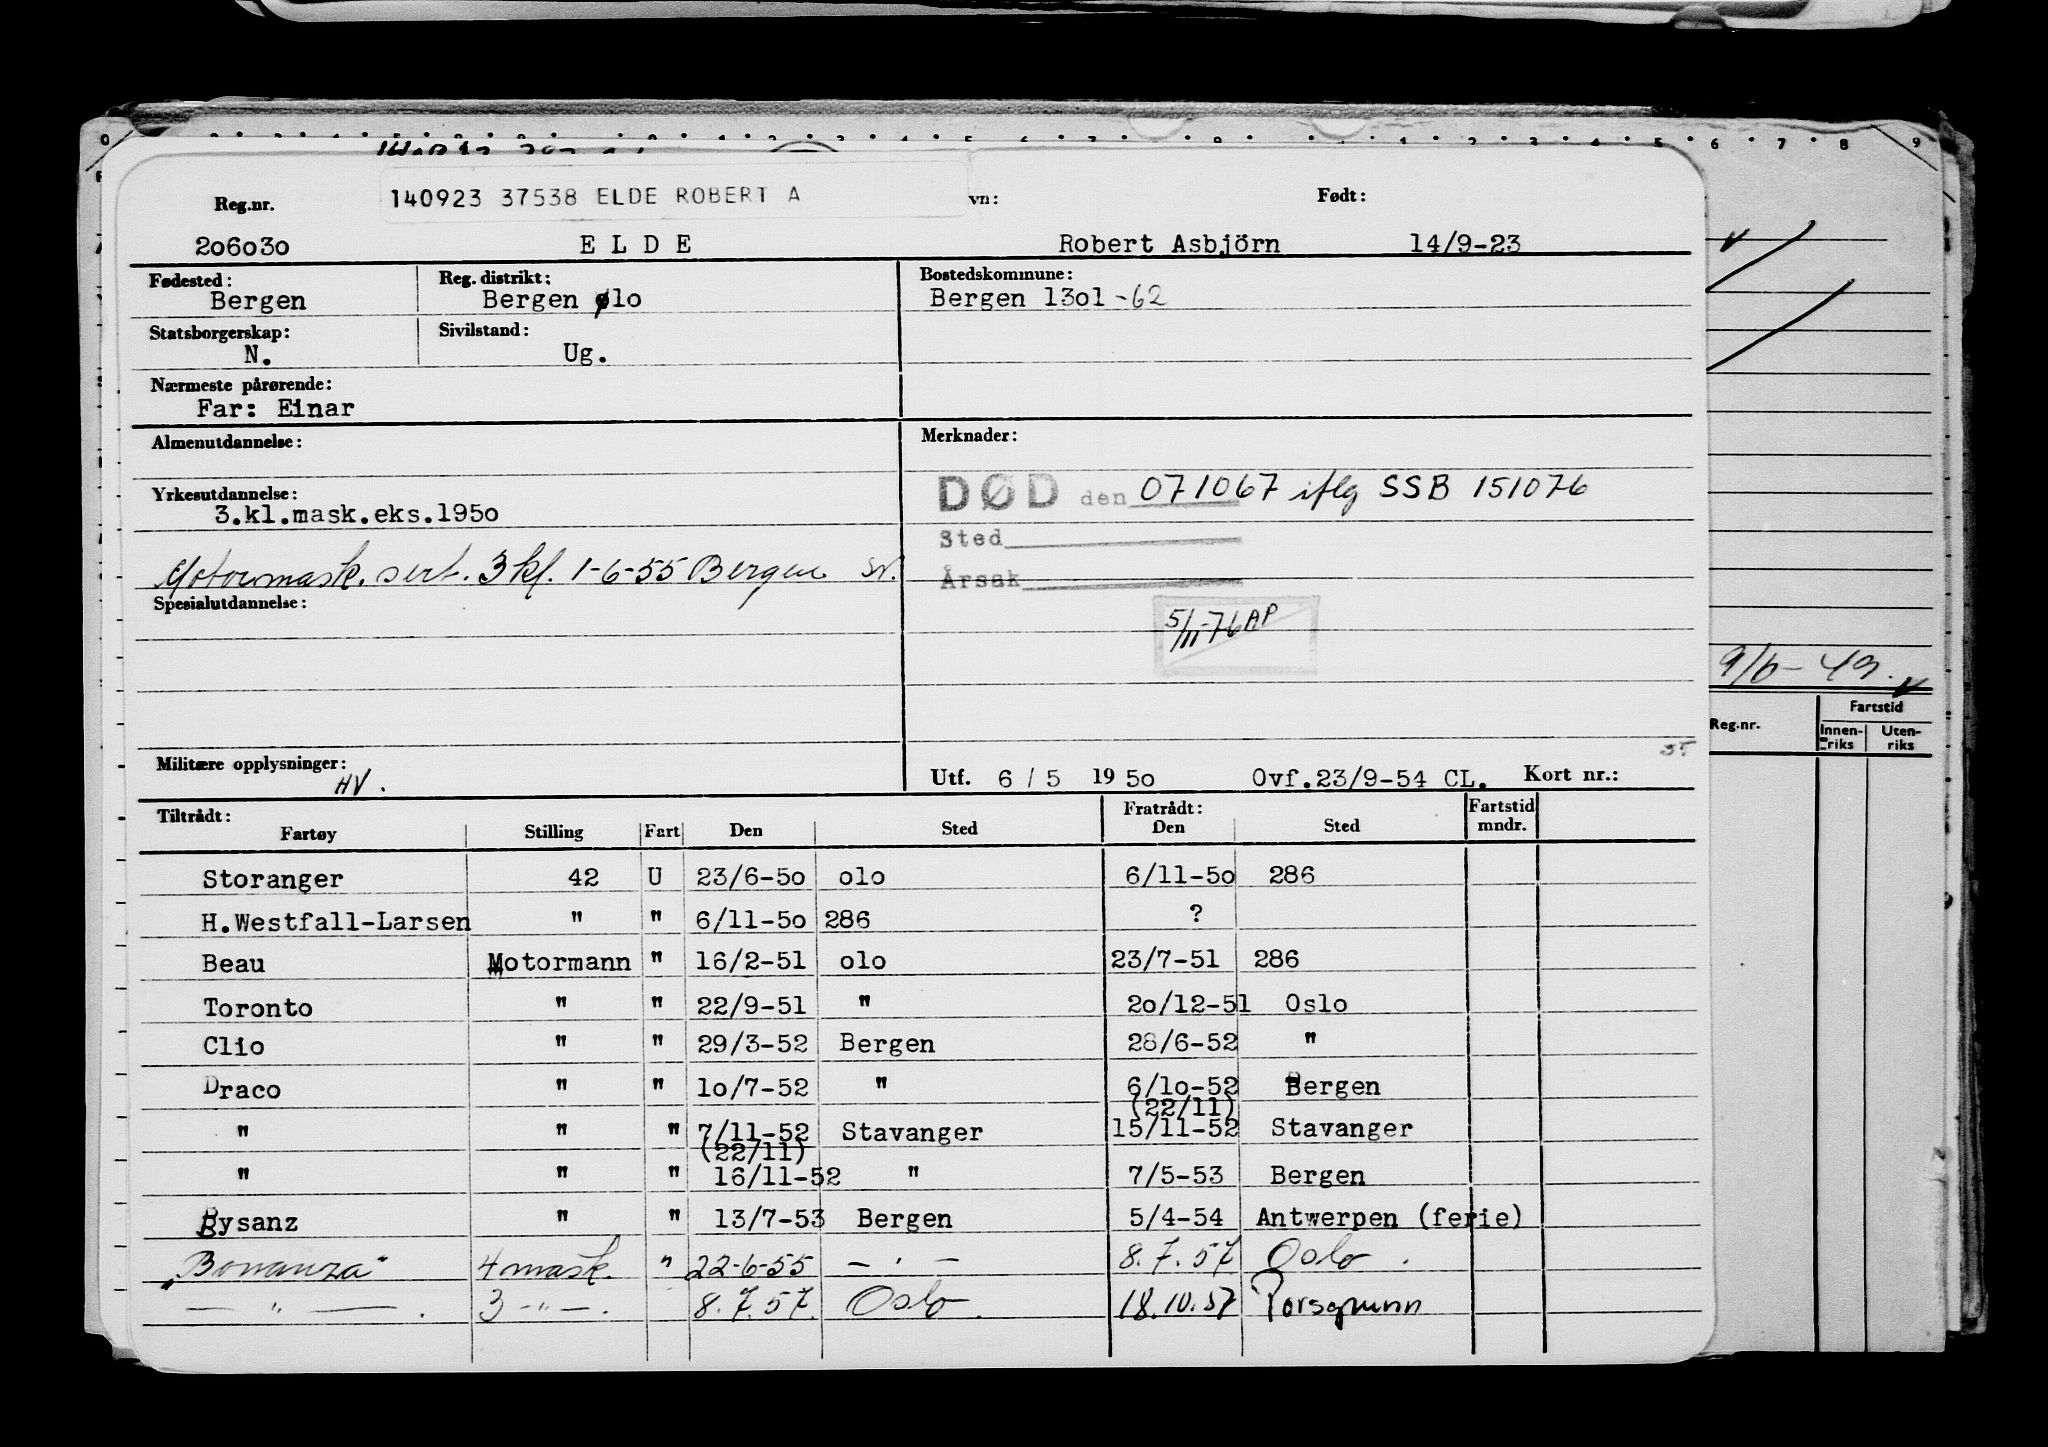 140923 37538 ELDE ROBERT A
Reg.nr. vn: Født:
206030 E L D E Robert Asbjörn 14/9-23
Fødested: Reg. distrikt: Bostedskommune:
Bergen Bergen olo Bergen 13o1 -62
Statsborgerskap: Sivilstand:
N. Ug.
Nærmeste pårørende:
Far: Einar
Almenutdannelse: Merknader:
Yrkesutdannelse: DØD den 071067 iflg SSB 151076
3.kl.mask.eks.195o
Sted
Motormask. sert. 3 kl. 1-6-55 Bergen
Årsak
Spesialutdannelse:
5/11-76 AP
9/6-49.
Reg.nr. Fartstid
Innen-riks Uten-riks
Militære opplysninger: HV.
Utf. 6 / 5 19 5o Ovf.23/9-54 CL. Kort nr.:
Tiltrådt: Fratrådt: Fartstid mndr.
Fartøy Stilling Fart Den Sted Den Sted
Storanger 42 U 23/6-5o olo 6/11-5o 286
H.Westfall-Larsen " " 6/11-5o 286 ?
Beau Motormann " 16/2-51 olo 23/7-51 286
Toronto " " 22/9-51 " 2o/12-51 Oslo
Clio " " 29/3-52 Bergen 28/6-52 "
Draco " " 1o/7-52 " 6/1o-52 Bergen
(22/11)
" " " 7/11-52 Stavanger 15/11-52 Stavanger
(22/11)
" " " 16/11-52 " 7/5-53 Bergen
Bysanz " " 13/7-53 Bergen 5/4-54 Antwerpen (ferie)
"Bonanza" 4 mask. " 22-6-55 — . — 8.7.57 Oslo.
— " — . 3 -"- . 8.7.57. Oslo. 18.10.57 Porsgrunn